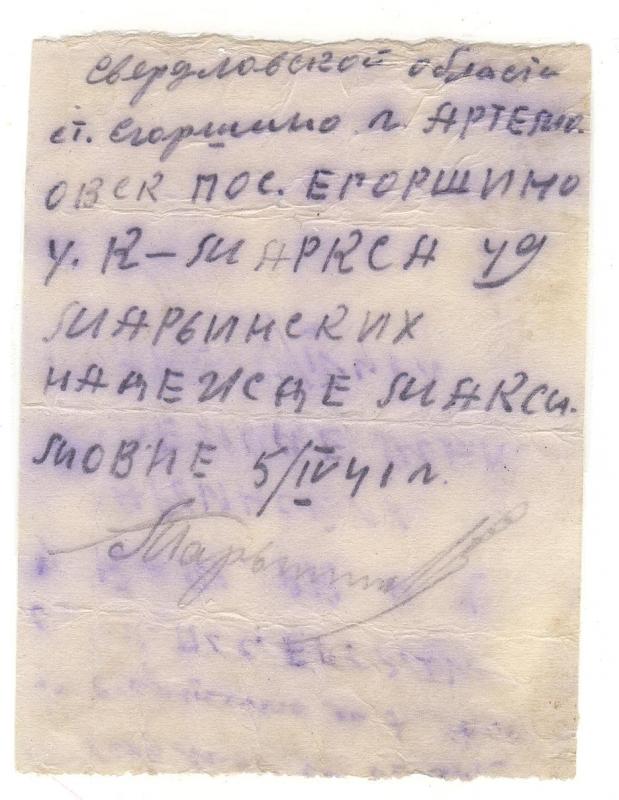 Свердловской области
ст. Егоршино г. АРТЕМ.
ОВСК ПОС. ЕГОРШИНО
У. К-МАРКСА 49
МАРЬИНСКИХ
НАДЕЖДЕ МАКСИ.
МОВНЕ 5/IV 41 г.